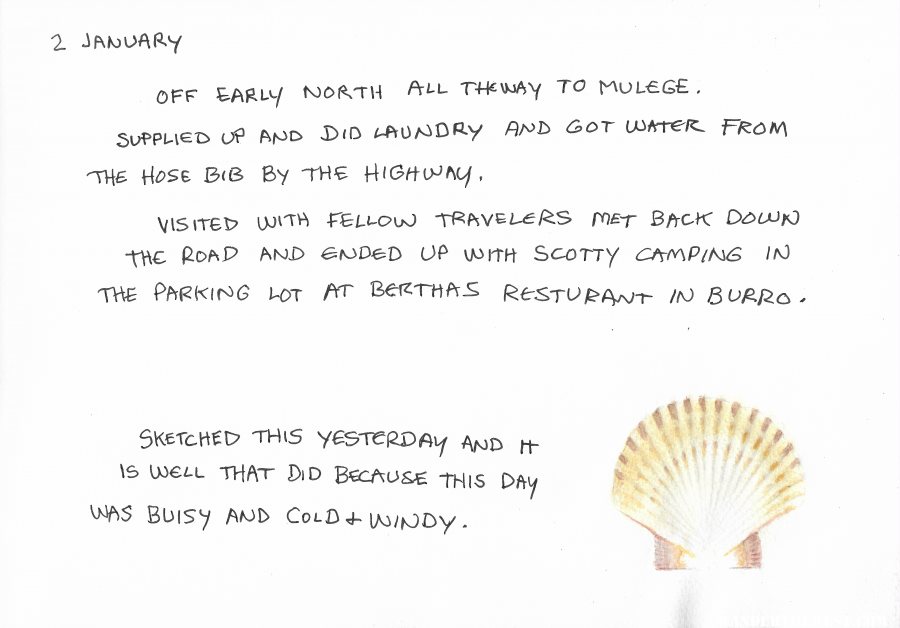 2 JANUARY
OFF EARLY NORTH ALL THEWAY TO MULEGE.
SUPPLIED UP AND DID LAUNDRY AND GOT WATER FROM
THE HOSE BIB BY THE HIGHWAY.
VISITED WITH FELLOW TRAVELERS MET BACK DOWN
THE ROAD AND ENDED UP WITH SCOTTY CAMPING IN
THE PARKING LOT AT BERTHAS RESTURANT IN BURRO.
SKETCHED THIS YESTERDAY AND IT
IS WELL THAT DID BECAUSE THIS DAY
WAS BUISY AND COLD + WINDY.